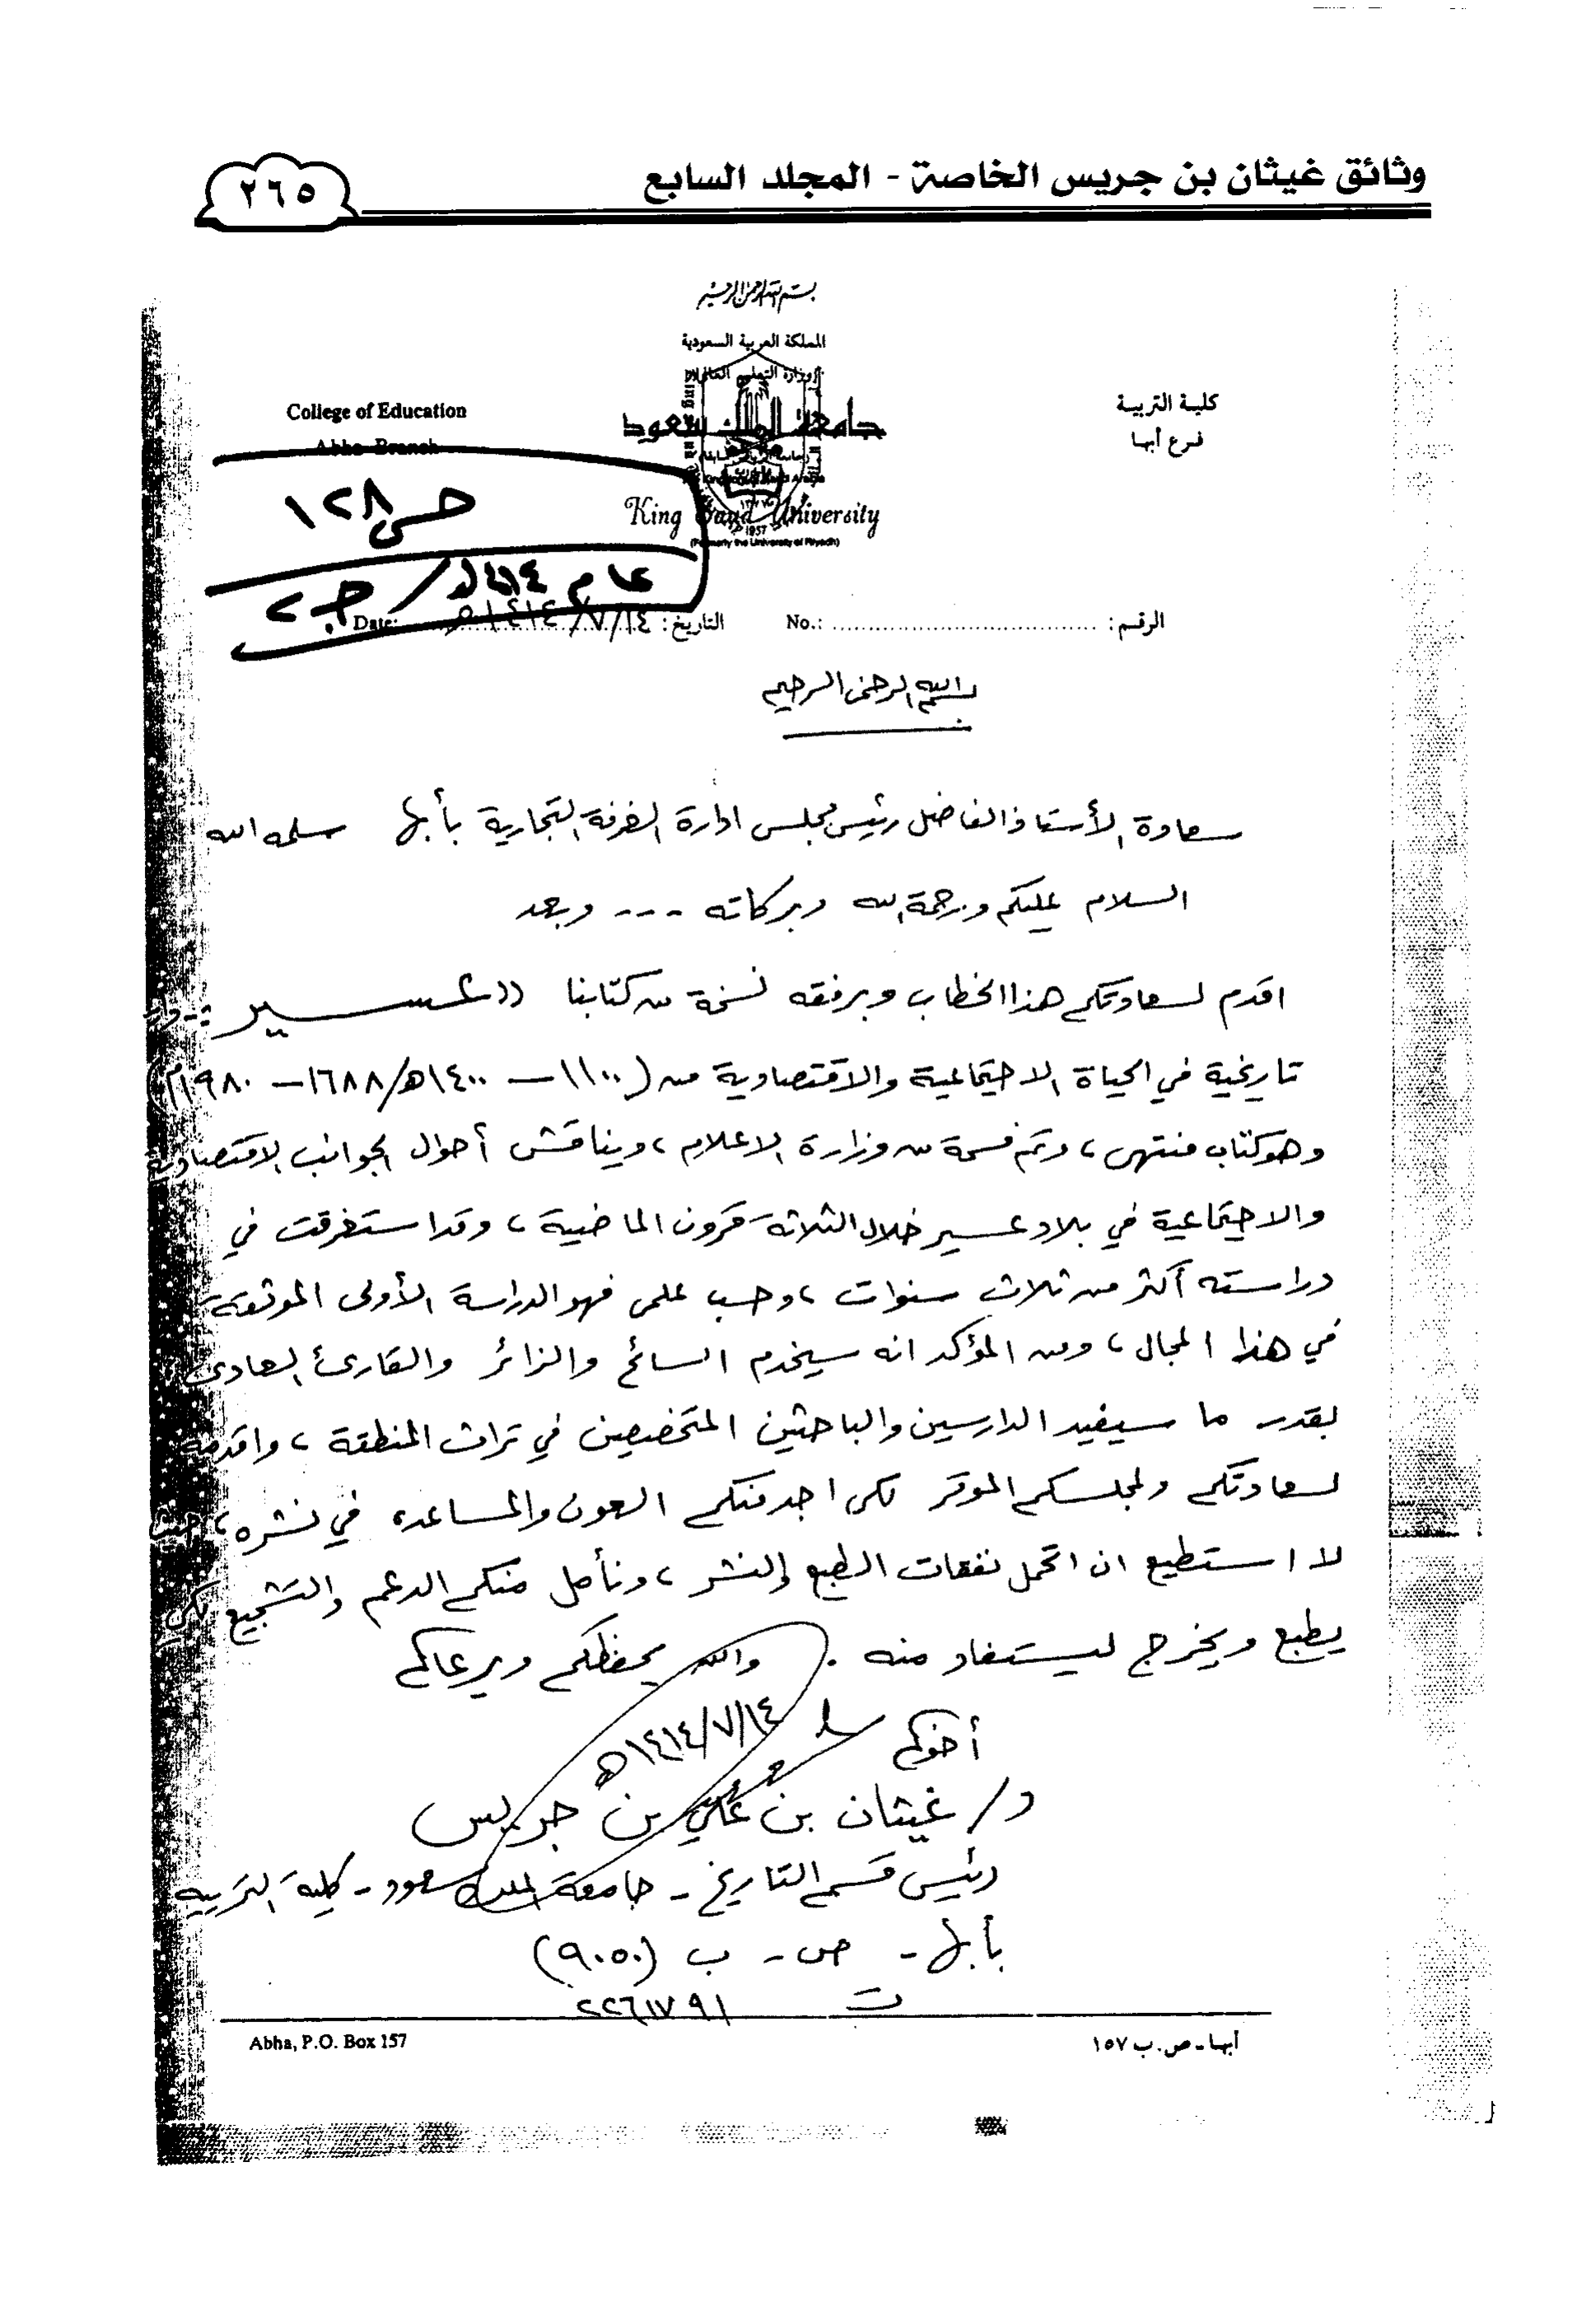 وثائق غيثان بن جريس الخاصة - المجلد السابع
٢٦٥
بسم الله الرحمن الرحيم
المملكة العربية السعودية
وزارة التعليم العالي
كلية التربية
جامعة الملك سعود
College of Education
فرع أبها
Abha Branch
King Saud University
(Formerly the University of Riyadh)
١٩٥٧
ص ١٢٨
عام ١٤١٤هـ / جـ ٢
الرقم: No.:
التاريخ: ١٤/٧/١٤١٤هـ Date:
بسم الله الرحمن الرحيم
سعادة الأستاذ الفاضل رئيس مجلس ادارة الغرفة التجارية بأبها سلمه الله
السلام عليكم ورحمة الله وبركاته --- وبعد
اقدم لسعادتكم هذا الخطاب وبرفقه نسخة من كتابنا ((عسير:
تاريخية في الحياة الاجتماعية والاقتصادية من (١١٠٠ – ١٤٠٠هـ/١٦٨٨ – ١٩٨٠م)
وهو كتاب منتهي، وتم فسحة من وزارة الاعلام، ويناقش أحوال الجوانب الاقتصادية
والاجتماعية في بلاد عسير خلال الثلاثة قرون الماضية، وقد استغرقت في
دراسته أكثر من ثلاث سنوات، وحسب علمي فهو الدراسة الأولى الموثقة
في هذا المجال، ومن المؤكد انه سيخدم السائح والزائر والقارئ العادي
بقدر ما سيفيد الدارسين والباحثين المتخصصين في تراث المنطقة، واقدمه
لسعادتكم ولمجلسكم الموقر لكي اجد منكم العون والمساعده في نشره، حيث
لا استطيع ان اتحمل نفقات الطبع والنشر، ونأمل منكم الدعم والتشجيع لكي
يطبع ويخرج ليستفاد منه. والله يحفظكم ويرعاكم
أخوكم
١٤/٧/١٤١٤هـ
د/ غيثان بن علي بن جريس
رئيس قسم التاريخ - جامعة الملك سعود - كلية التربيه
بأبها - ص - ب (٩٠٥٠)
ت ٢٢٦١٧٩١
أبها - ص . ب ١٥٧
Abha, P.O. Box 157